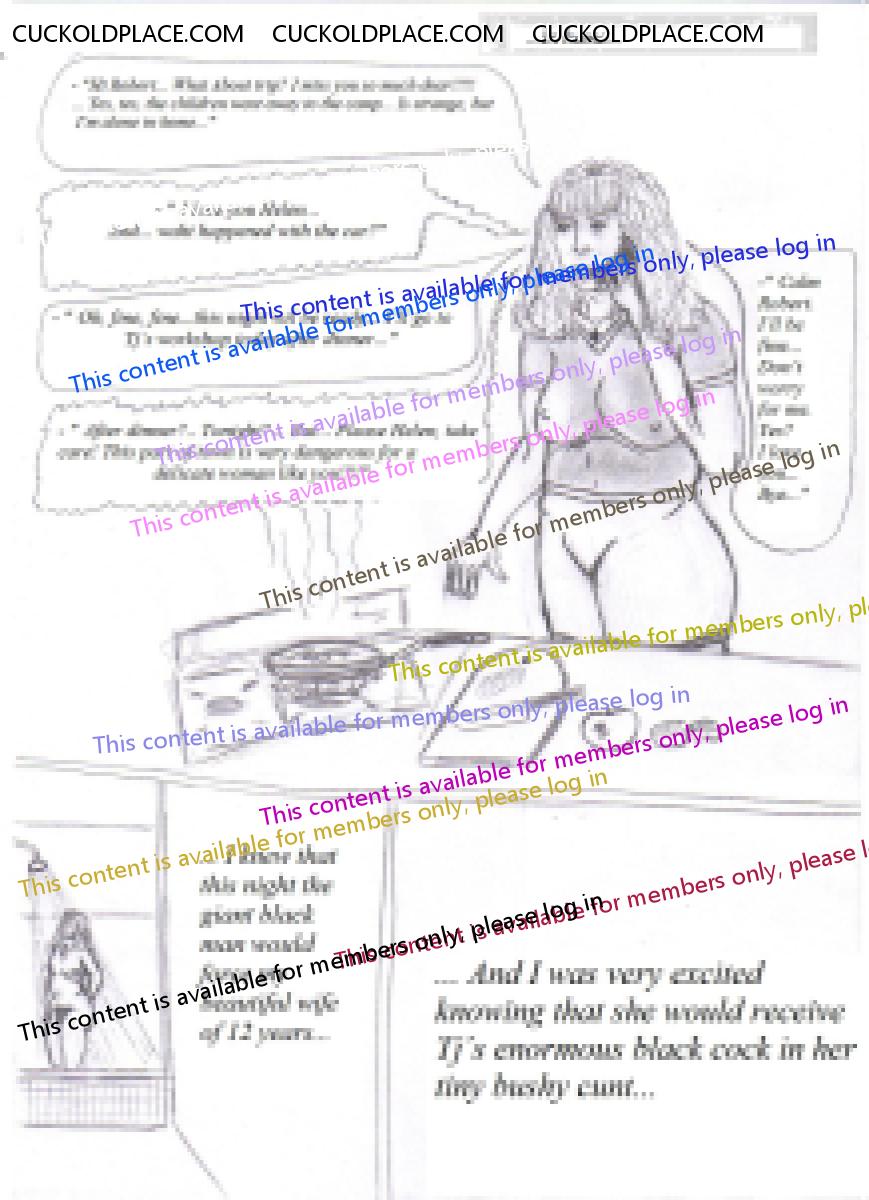 CUCKOLDPLACE.COM CUCKOLDPLACE.COM CUCKOLDPLACE.COM
- "Hi Robert... What about trip? I miss you so much dear!!!!
... Yes, yes, the children were away to the camp... Is strange, but
I'm alone in home..."
you Helen...
And... happened with the car?"
- " Oh, fine, fine... this
Tj's dinner..."
- " After dinner?.. Please Helen, take
care! This is very dangerous for a
delicate woman like
-" Calm
Robert.
I'll be
fine...
Don't
worry
for me.
Yes?
I
Bye..."
This content is available for members only, please log in
This content is available for members only, please log in
This content is available for members only, please log in
This content is available for members only, please log in
This content is available for members only, please log in
This content is available for members only, pl
This content is available for members only, please log in
This content is available for members only, please log in
This content is available for members only, please log in
This content is available for members only, please l
This content is available for members only, please log in
I knew that
this night the
giant black
man would
beautiful wife
of 12 years...
... And I was very excited
knowing that she would receive
Tj´s enormous black cock in her
tiny bushy cunt...